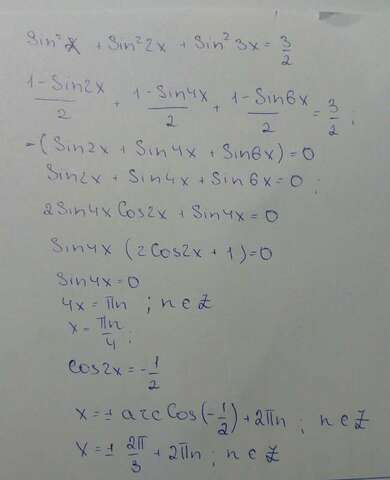 Sin²x + Sin²2x + Sin²3x = 3/2
(1-Sin2x)/2 + (1-Sin4x)/2 + (1-Sin6x)/2 = 3/2 ;
-(Sin2x + Sin4x + Sin6x) = 0
Sin2x + Sin4x + Sin6x = 0 ;
2Sin4x Cos2x + Sin4x = 0
Sin4x (2Cos2x + 1) = 0
Sin4x = 0
4x = πn ; n ∈ Z
x = πn/4 ;
Cos2x = -1/2
x = ± arcCos(-1/2) + 2πn ; n ∈ Z
x = ± 2π/3 + 2πn ; n ∈ Z